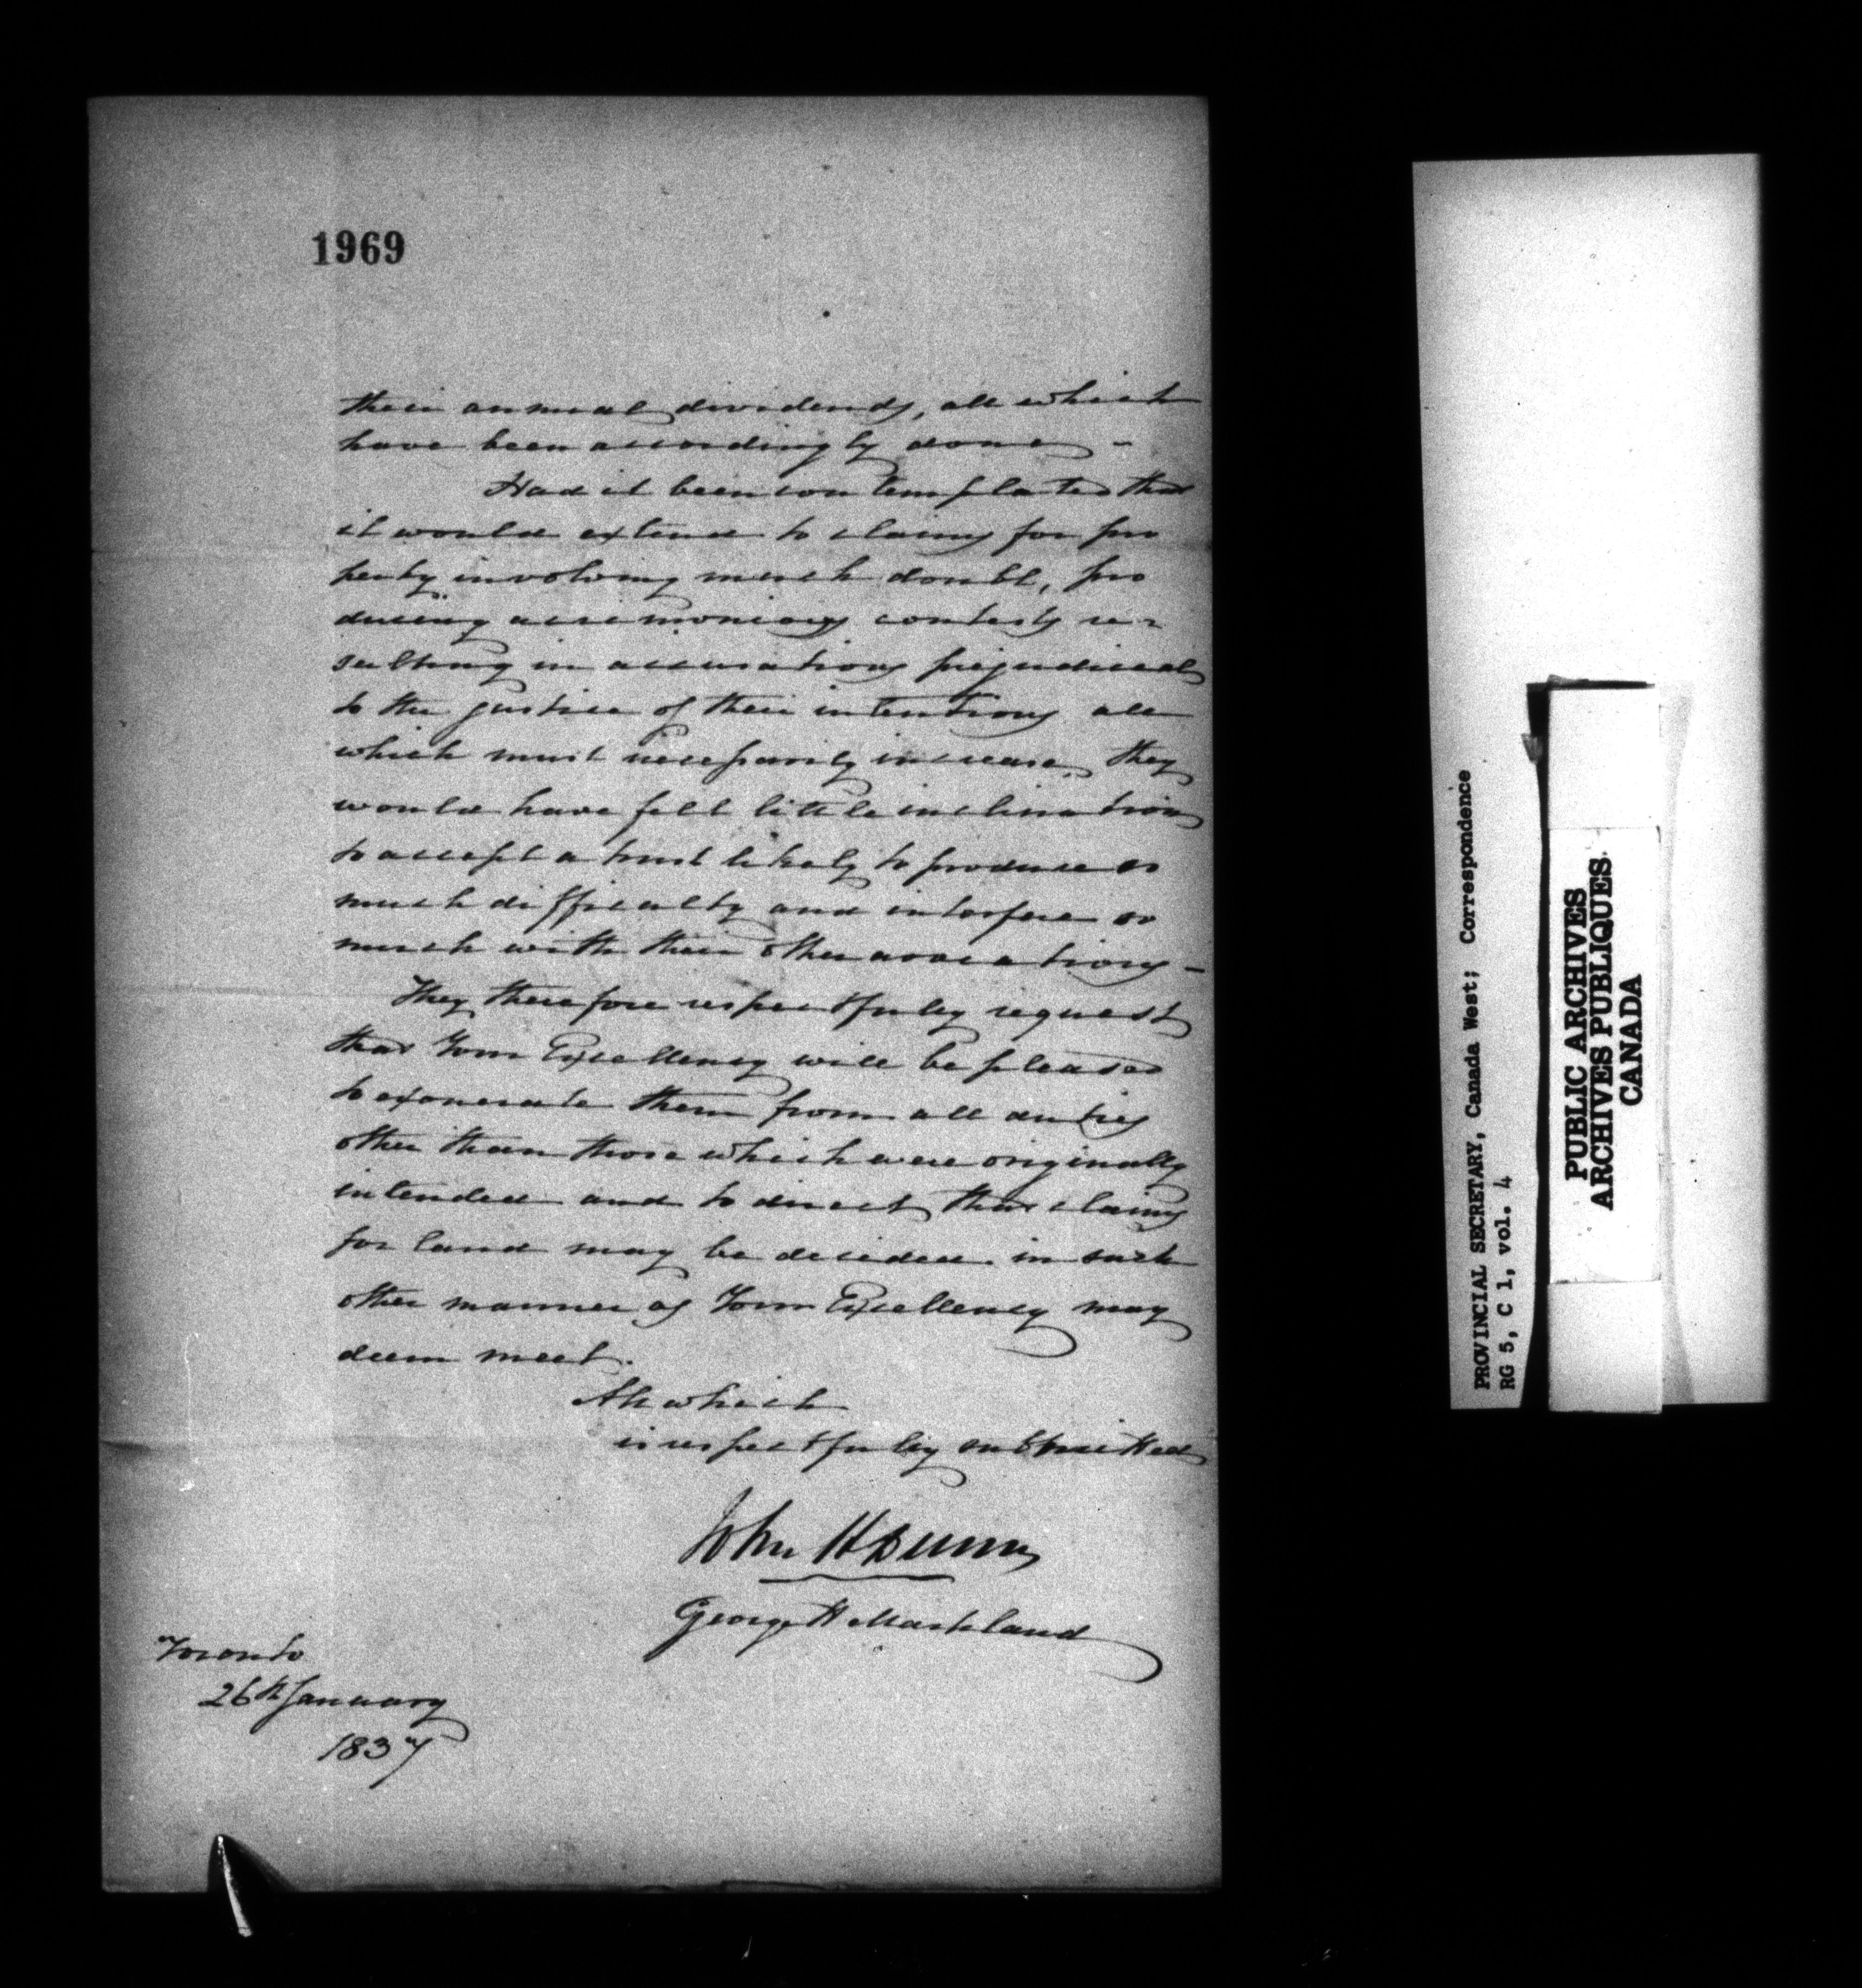 1969
their annual dividends, all which
have been accordingly done –
Had it been contemplated that
it would extend to claims for pro
perty involving much doubt, pro
ducing acrimonious contests re-
sulting in accusations prejudicial
to the justice of their intentions all
which must necessarily increase, they
would have felt little inclination
to accept a trust likely to produce so
much difficulty and interfere so
much with their other avocations –
They therefore respectfully request
that Your Excellency will be pleased
to exonerate them from all duties
other than those which were originally
intended and to direct that claims
for land may be decided in such
other manner as Your Excellency may
deem meet.
All which
is respectfully submitted
John H Dunn
George H Markland
Toronto
26th January
1837
PROVINCIAL SECRETARY, Canada West; Correspondence
RG 5, C 1, vol. 4
PUBLIC ARCHIVES
ARCHIVES PUBLIQUES
CANADA